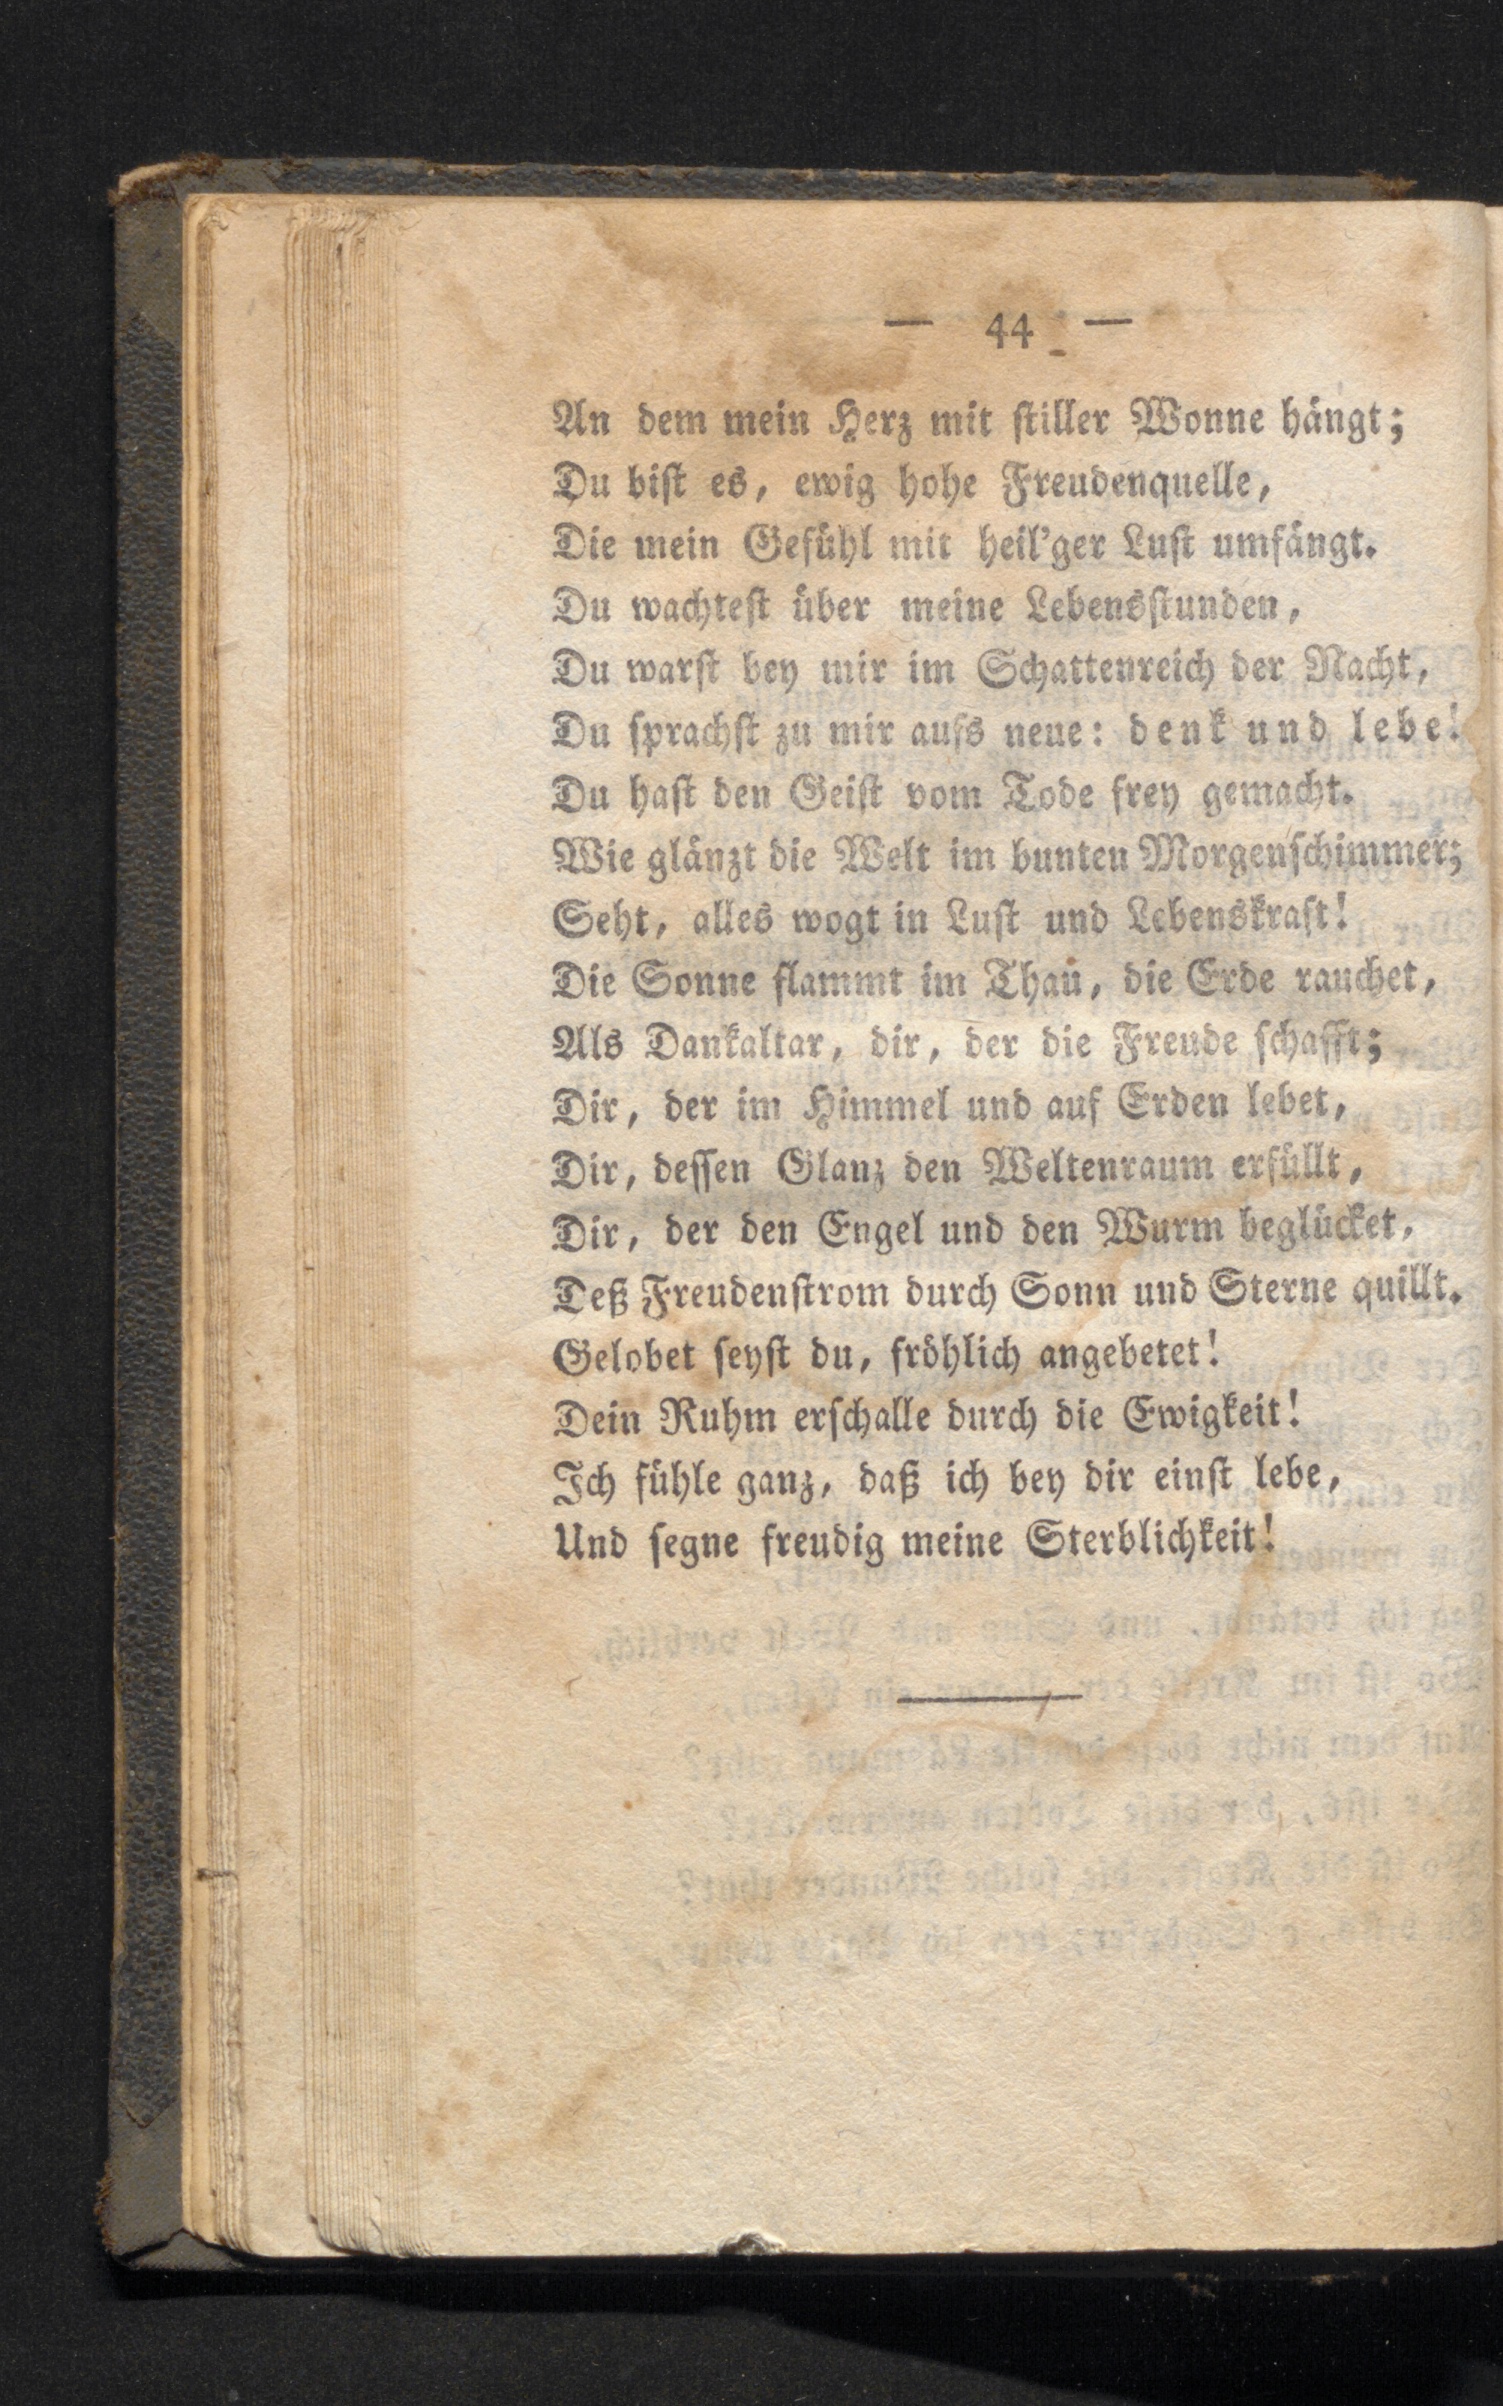 — 44 —
An dem mein Herz mit stiller Wonne hängt;
Du bist es, ewig hohe Freudenquelle,
Die mein Gefühl mit heil'ger Lust umfängt.
Du wachtest über meine Lebensstunden,
Du warst bey mir im Schattenreich der Nacht,
Du sprachst zu mir aufs neue: denk und lebe!
Du hast den Geist vom Tode frey gemacht.
Wie glänzt die Welt im bunten Morgenschimmer;
Seht, alles wogt in Lust und Lebenskraft!
Die Sonne flammt im Thau, die Erde rauchet,
Als Dankaltar, dir, der die Freude schafft;
Dir, der im Himmel und auf Erden lebet,
Dir, dessen Glanz den Weltenraum erfüllt,
Dir, der den Engel und den Wurm beglücket,
Deß Freudenstrom durch Sonn und Sterne quillt.
Gelobet seyst du, fröhlich angebetet!
Dein Ruhm erschalle durch die Ewigkeit!
Ich fühle ganz, daß ich bey dir einst lebe,
Und segne freudig meine Sterblichkeit!